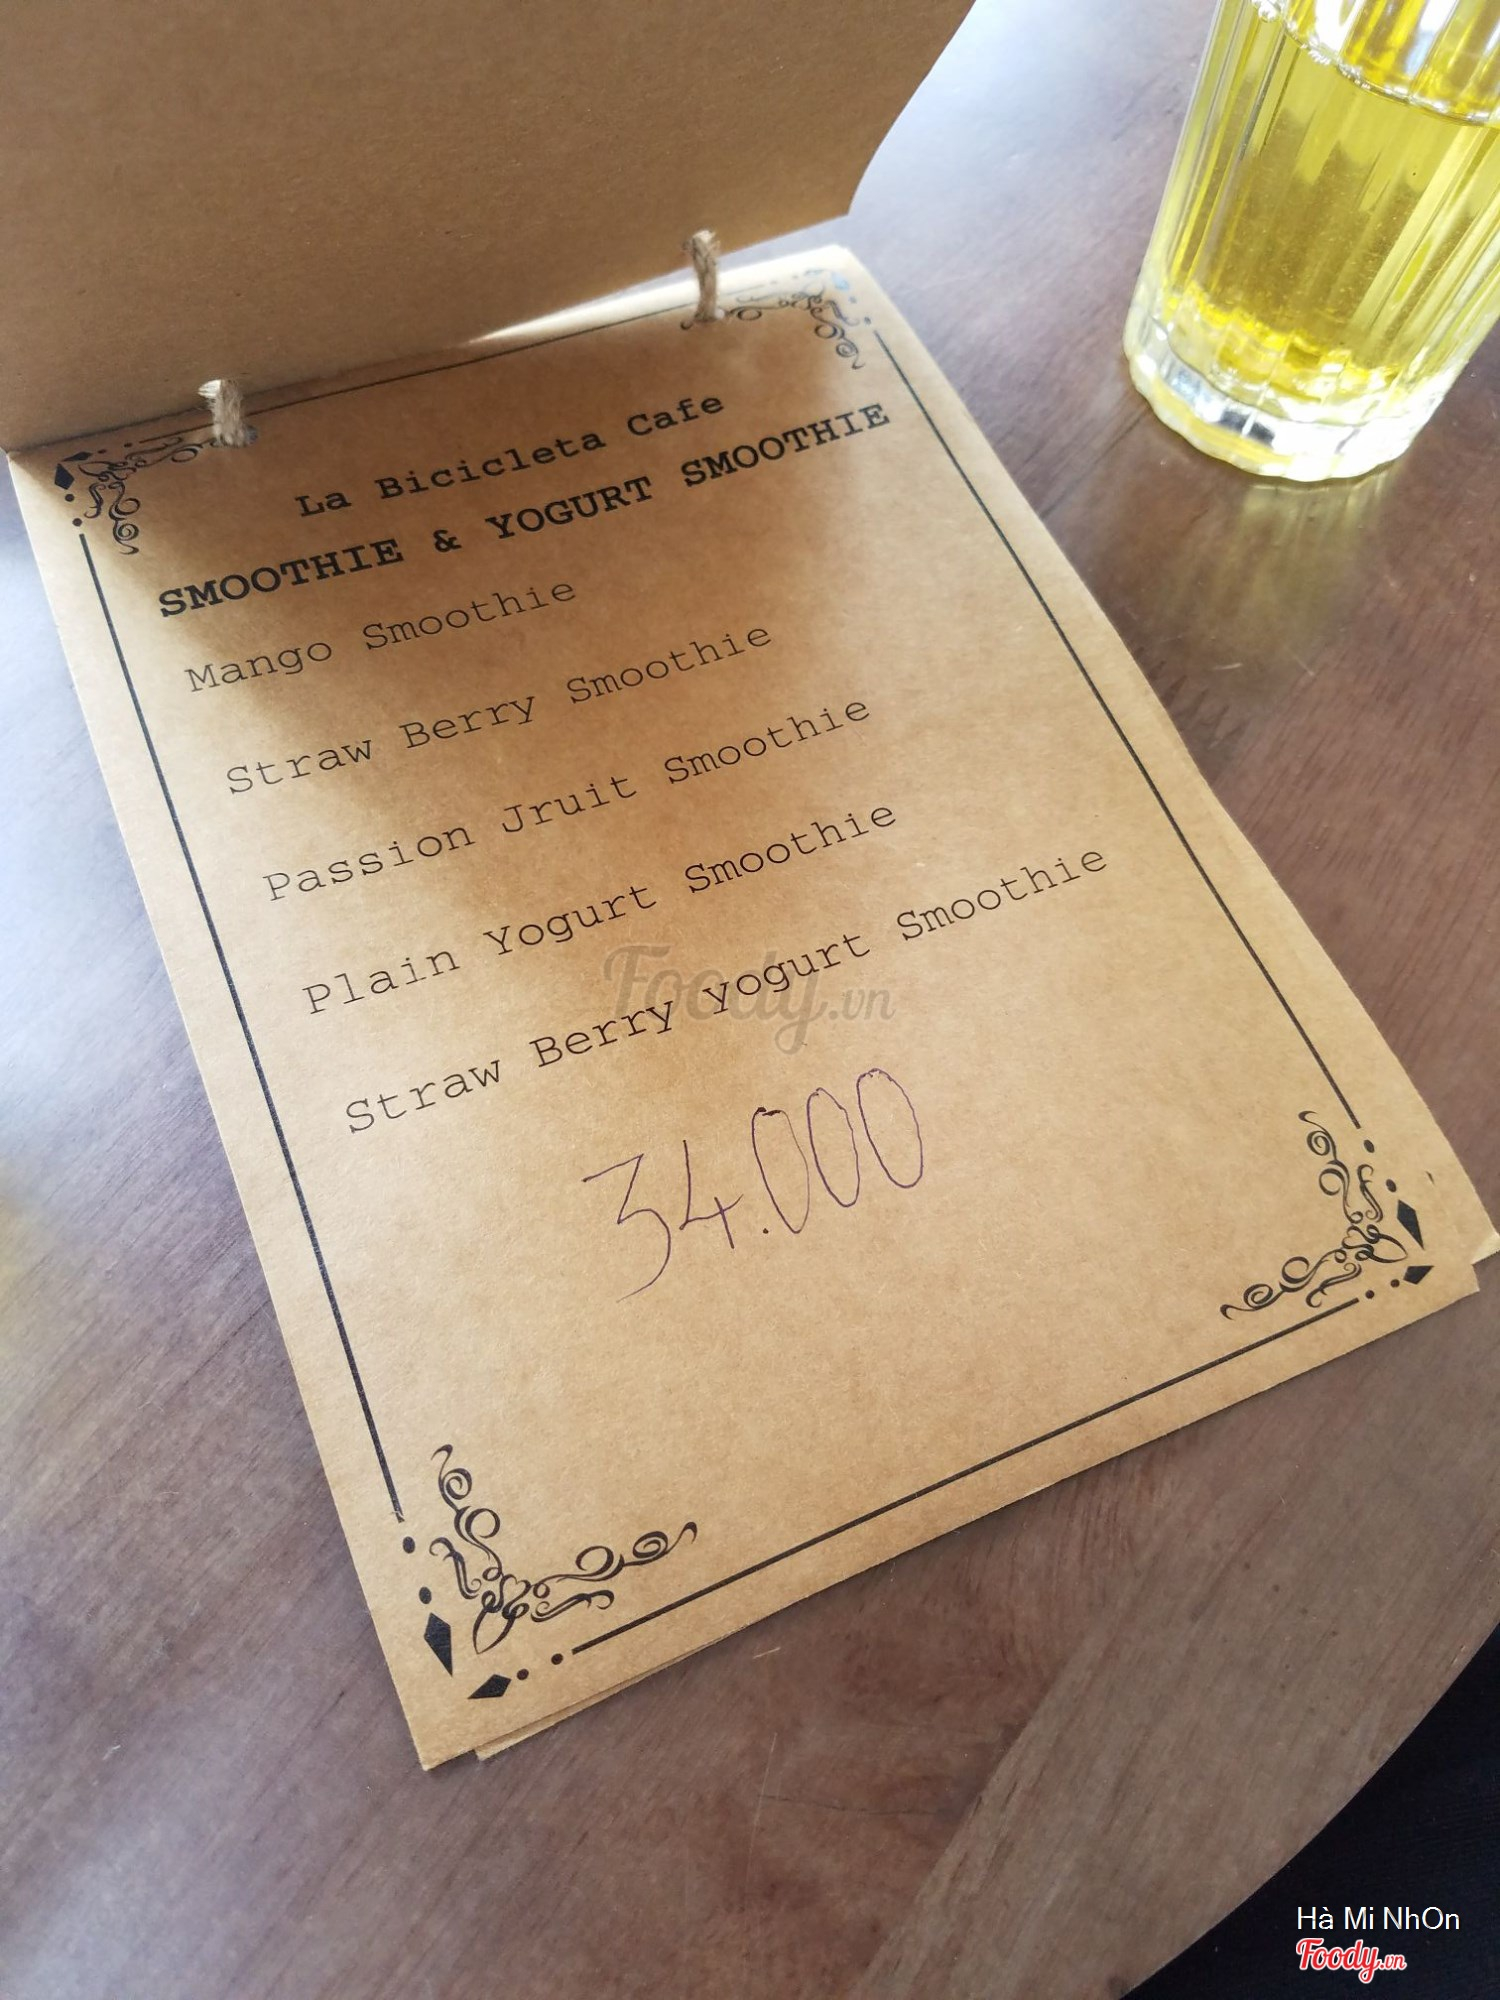 La Bicicleta Cafe
SMOOTHIE & YOGURT SMOOTHIE
Mango Smoothie
Straw Berry Smoothie
Passion Jruit Smoothie
Plain Yogurt Smoothie
Straw Berry yogurt Smoothie
Foody.vn
34.000
Hà Mi NhOn
Foody.vn